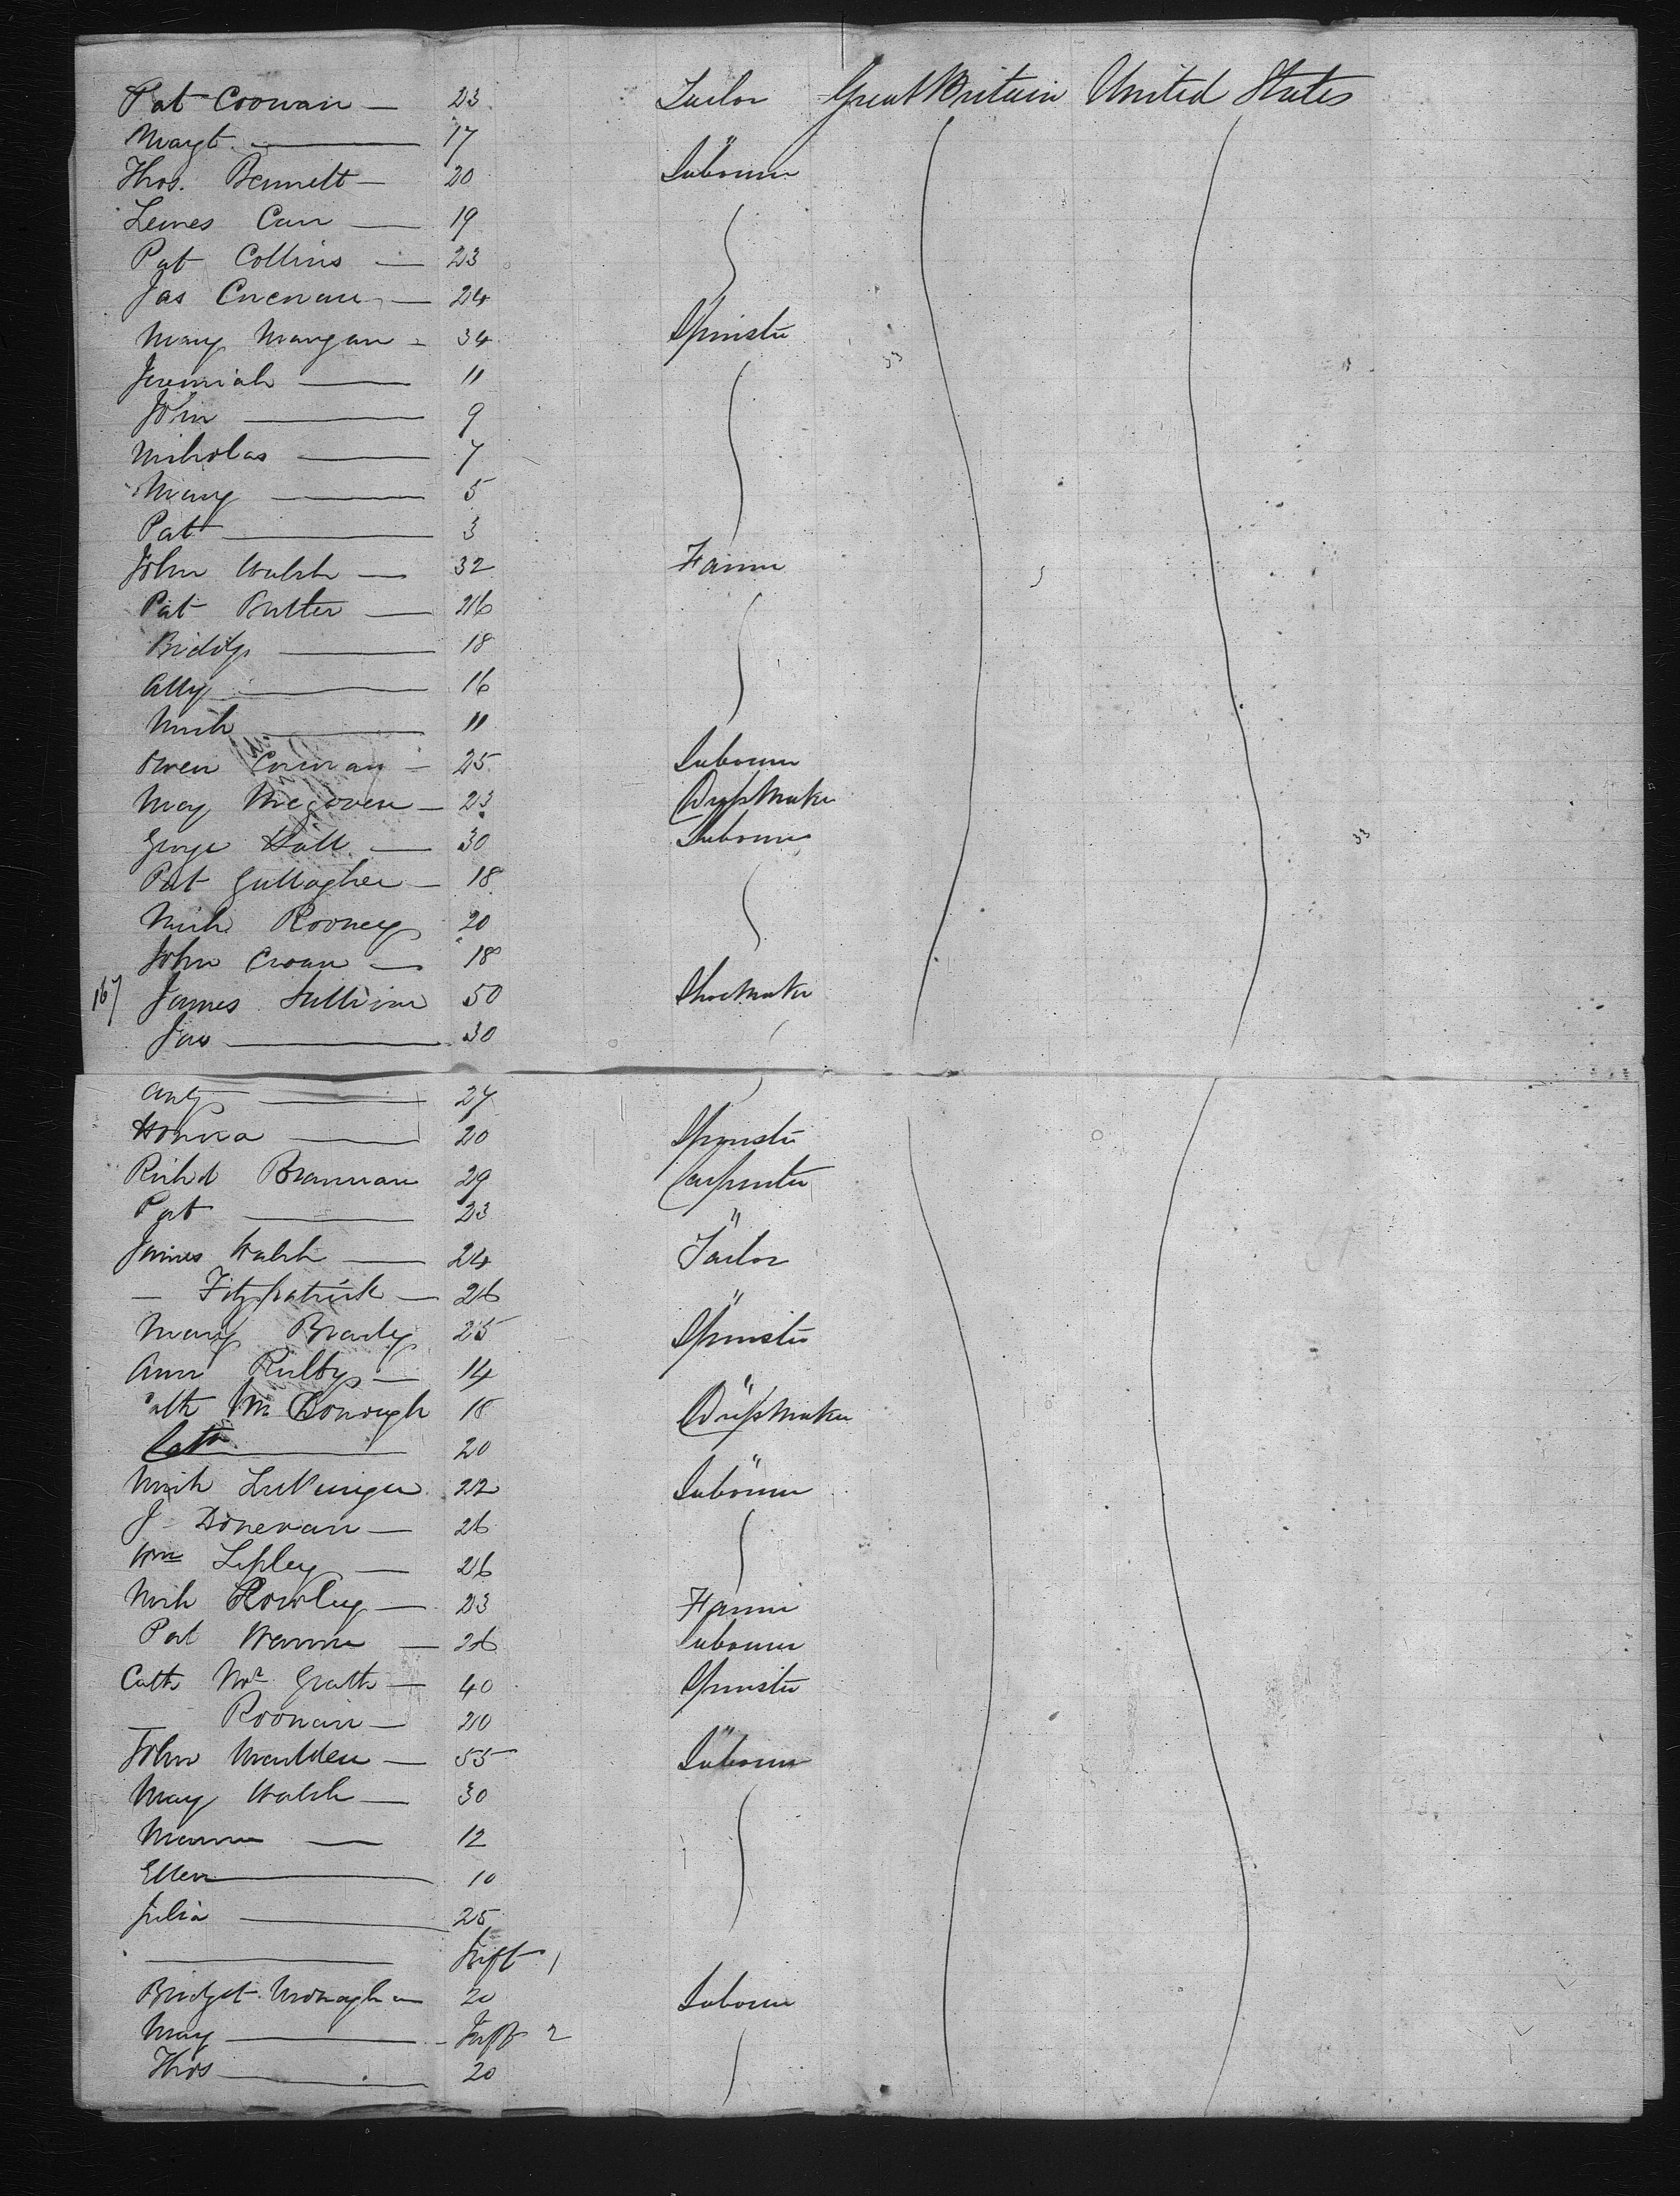 Pat Coowan — 23 Tailor Great Britain United States
Margt. — 17 "
Thos. Bennett — 20 Labourer
James Carr — 19
Pat Collins — 23
Jas Corcoran — 24
Mary Mangan — 34 Spinster
Jeremiah — 11
John — 9
Nicholas — 7
Mary — 5
Pat — 3
John Walsh — 32 Farmer
Pat Butler — 26
Biddy — 18
Ally — 16
Mich — 11
Owen Corcoran — 25 Labourer
Mary McGovern — 23 Dressmaker
George Hall — 30 Labourer
Pat Gallagher — 18
Mich Rooney 20
John Croan — 18
167 James Sullivan 50 Shoemaker
Jas — 30
Anty — 27
Honora — 20 Spinster
Richd Brannan 29 Carpenter
Pat — 23 "
James Walsh — 24 Tailor
— Fitzpatrick — 26 "
Mary Brady 25 Spinster
Ann — 14 "
Cath McDonough 18 Dressmaker
Cath — 20 "
Mich 22 Labourer
J Donevan — 26
Wm Lepley — 26
Mich Rowley — 23 Farmer
Pat — 26 Labourer
Cath Mc Grath — 40 Spinster
— Roonan — 20 "
John — 55 Labourer
Mary Walsh — 30
12
Ellen — 10
Julia — 25
— Inft 1
Bridget Monaghan 20 Labourer
Mary — Inft 2
Thos — 20